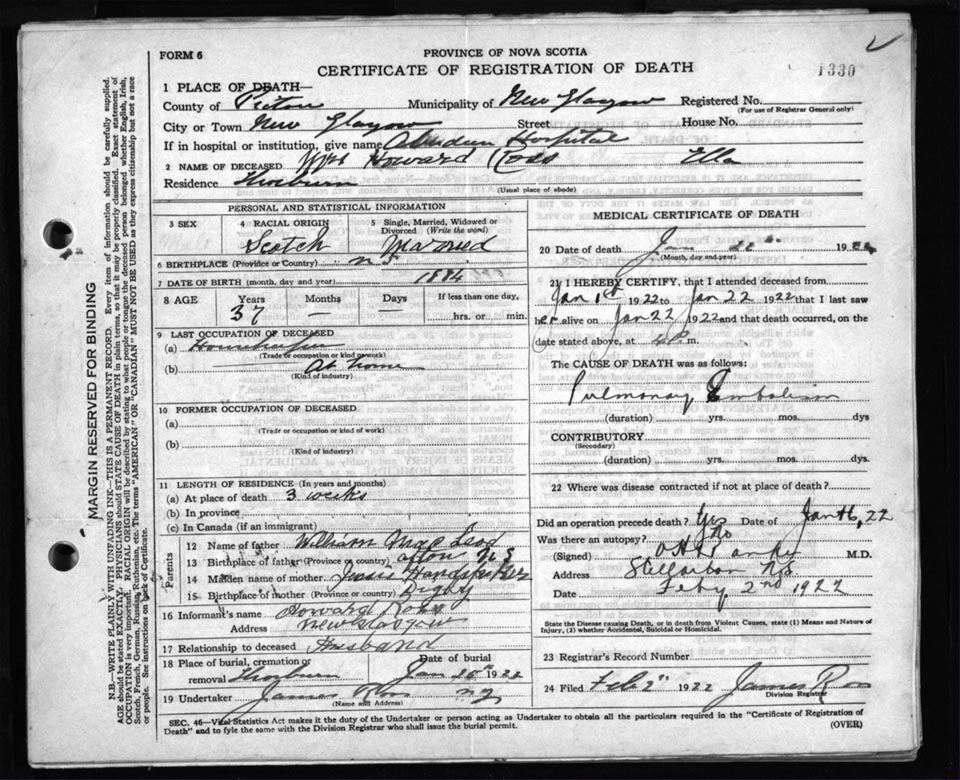 FORM 6
PROVINCE OF NOVA SCOTIA
CERTIFICATE OF REGISTRATION OF DEATH
1330
1 PLACE OF DEATH—
County of Pictou Municipality of New Glasgow Registered No.
(For use of Registrar General only)
City or Town New Glasgow Street House No.
If in hospital or institution, give name Aberdeen Hospital
2 NAME OF DECEASED Mrs Howard Ross Ella
Residence Thorburn
(Usual place of abode)
PERSONAL AND STATISTICAL INFORMATION
3 SEX 4 RACIAL ORIGIN 5 Single, Married, Widowed or Divorced (Write the word)
Scotch Married
6 BIRTHPLACE (Province or Country) N S
7 DATE OF BIRTH (month, day and year) 1884
8 AGE Years Months Days If less than one day,
37 — — hrs. or min.
9 LAST OCCUPATION OF DECEASED
(a) Housekeeper
(Trade or occupation or kind of work)
(b) At home
(Kind of industry)
10 FORMER OCCUPATION OF DECEASED
(a)
(Trade or occupation or kind of work)
(b)
(Kind of industry)
11 LENGTH OF RESIDENCE (In years and months)
(a) At place of death 3 weeks
(b) In province
(c) In Canada (if an immigrant)
Parents
12 Name of father William MacLeod
13 Birthplace of father (Province or country) N S
14 Maiden name of mother Jessie
15 Birthplace of mother (Province or country) Digby
16 Informant's name Howard Ross
Address New Glasgow
17 Relationship to deceased Husband
18 Place of burial, cremation or removal Thorburn Date of burial Jan 25th 1922
19 Undertaker James Ross N G
(Name and Address)
MEDICAL CERTIFICATE OF DEATH
20 Date of death Jan 22 1922
(Month, day and year)
21 I HEREBY CERTIFY, that I attended deceased from
Jan 1st 1922 to Jan 22 1922 that I last saw
her alive on Jan 22 1922 and that death occurred, on the
date stated above, at m.
The CAUSE OF DEATH was as follows:
Pulmonary Embolism
(duration) yrs. mos. dys
CONTRIBUTORY
(Secondary)
(duration) yrs. mos. dys
22 Where was disease contracted if not at place of death?
Did an operation precede death? Yes Date of Jan 16, 22
Was there an autopsy? No
(Signed) M.D.
Address Stellarton N.S.
Date Feby 2nd 1922
State the Disease causing Death, or in death from Violent Causes, state (1) Means and Nature of Injury, (2) whether Accidental, Suicidal or Homicidal.
23 Registrar's Record Number
24 Filed Feb 2nd 1922 James Ross
Division Registrar
SEC. 46—Vital Statistics Act makes it the duty of the Undertaker or person acting as Undertaker to obtain all the particulars required in the "Certificate of Registration of
Death" and to fyle the same with the Division Registrar who shall issue the burial permit. (OVER)
MARGIN RESERVED FOR BINDING
N.B.—WRITE PLAINLY WITH UNFADING INK—THIS IS A PERMANENT RECORD. Every item of information should be carefully supplied.
AGE should be stated EXACTLY. PHYSICIANS should STATE CAUSE OF DEATH in plain terms, so that it may be properly classified. Exact statement of
OCCUPATION is very important. RACIAL ORIGIN will be described by stating to what people or tongue the deceased person belonged whether English, Irish,
Scotch, French, German, Russian, Ruthenian, etc. The terms "AMERICAN" OR "CANADIAN" MUST NOT BE USED as they express citizenship but not a race
or people. See instructions on back of Certificate.